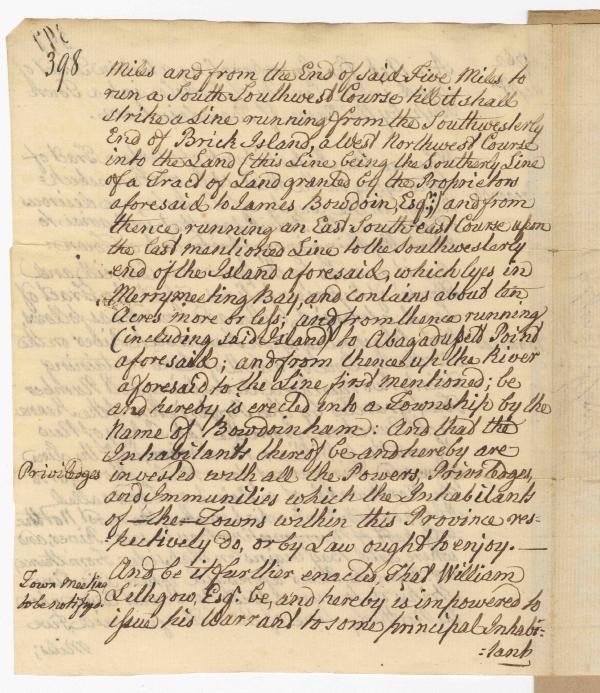 398
Miles and from the End of said Five Miles to
run a South Southwest Course till it shall
strike a Line running from the Southwesterly
End of Brick Island, a West Northwest Course
into the Land (this Line being the Southerly Line
of a Tract of Land granted by the Proprietors
aforesaid to James Bowdoin Esqr; and from
thence running an East South-east Course upon
the last mentioned Line to the Southwesterly
end of the Island aforesaid, which lyes in
Merrymeeting Bay, and contains about ten
Acres more or less; and from thence running
(including said Island) to Abagadusett Point
aforesaid; and from thence up the River
aforesaid to the Line first mentioned; be
and hereby is erected into a Township by the
Name of Bowdoinham: And that the
Inhabitants thereof be and hereby are
Priviledges
invested with all the Powers, Priviledges,
and Immunities which the Inhabitants
of the Towns within this Province res-
-pectively do, or by Law ought to enjoy. —
Town Meeting
to be notifyd.
And be it further enacted, That William
Lithgow, Esqr. be, and hereby is impowered to
issue his Warrant to some principal Inhabi-
-tant